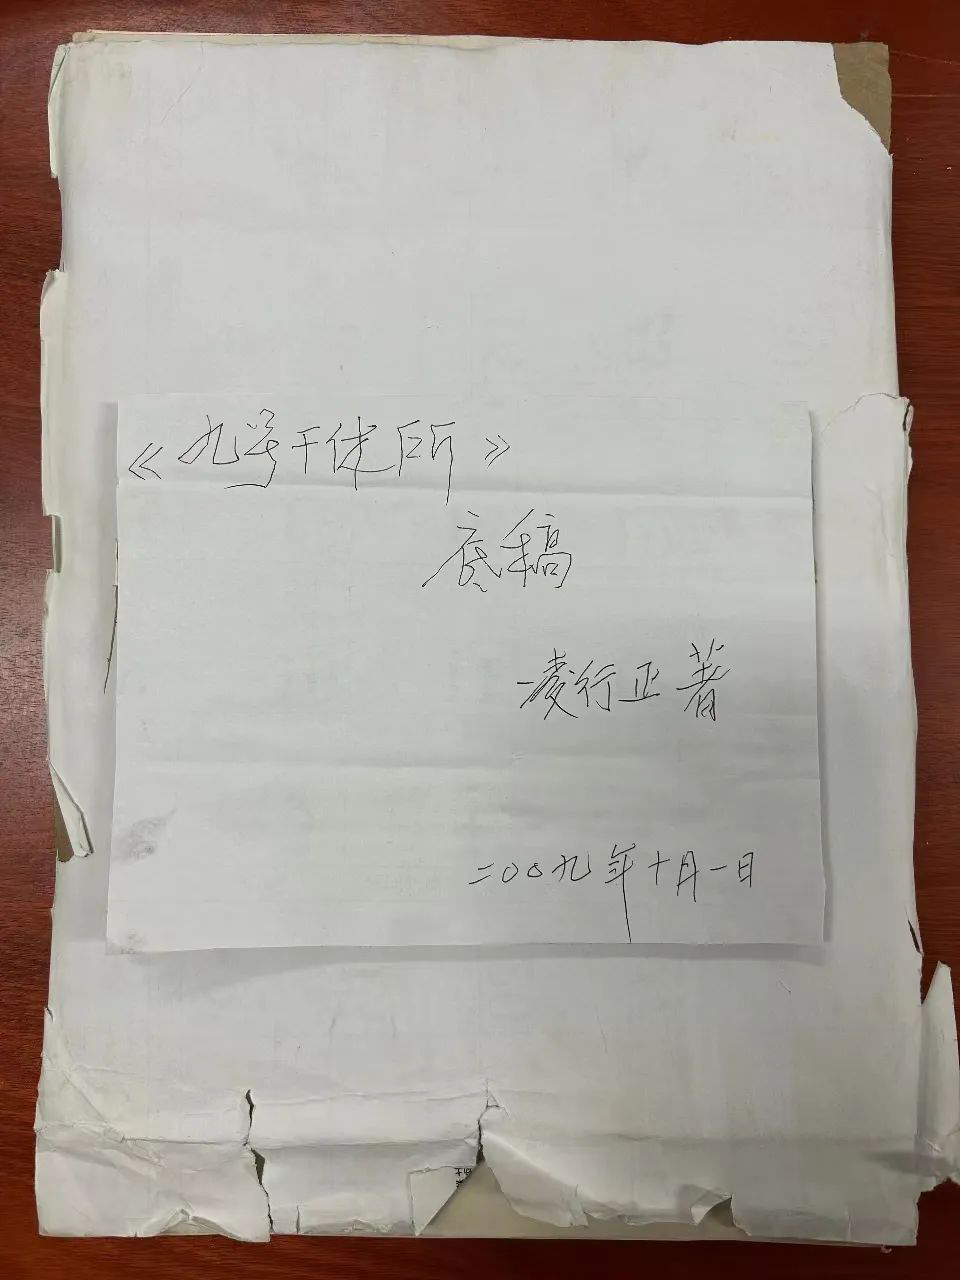 《九号干休所》
底稿
凌行正著
二00九年十月一日